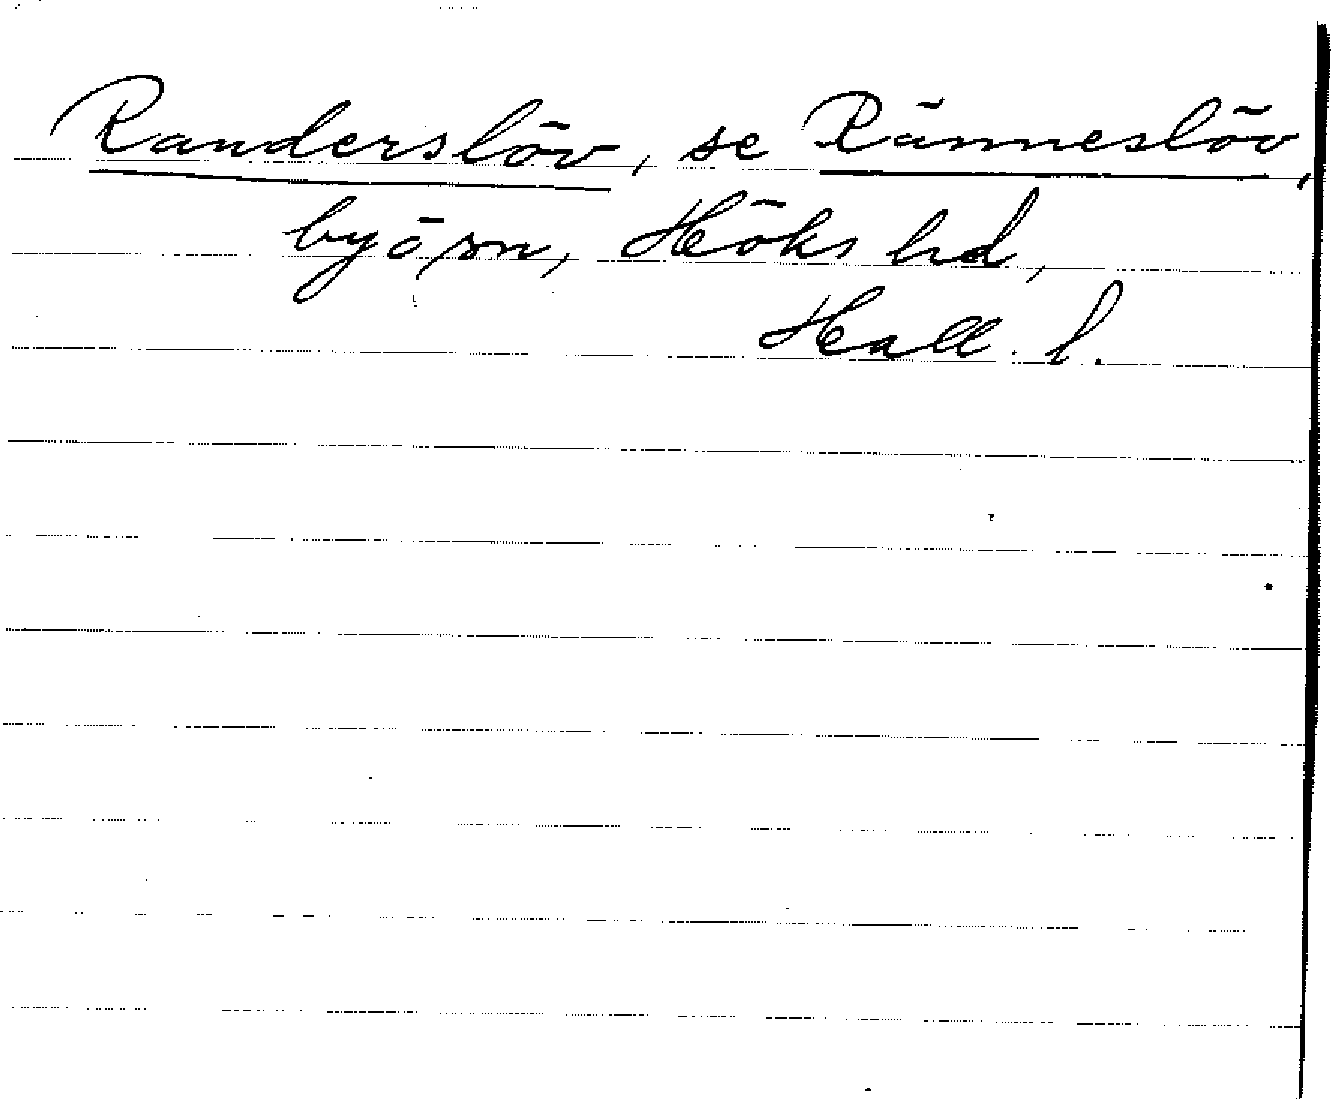 Randerslöv, se Ränneslöv,
by o sn, Höks hd,
Hall. l.